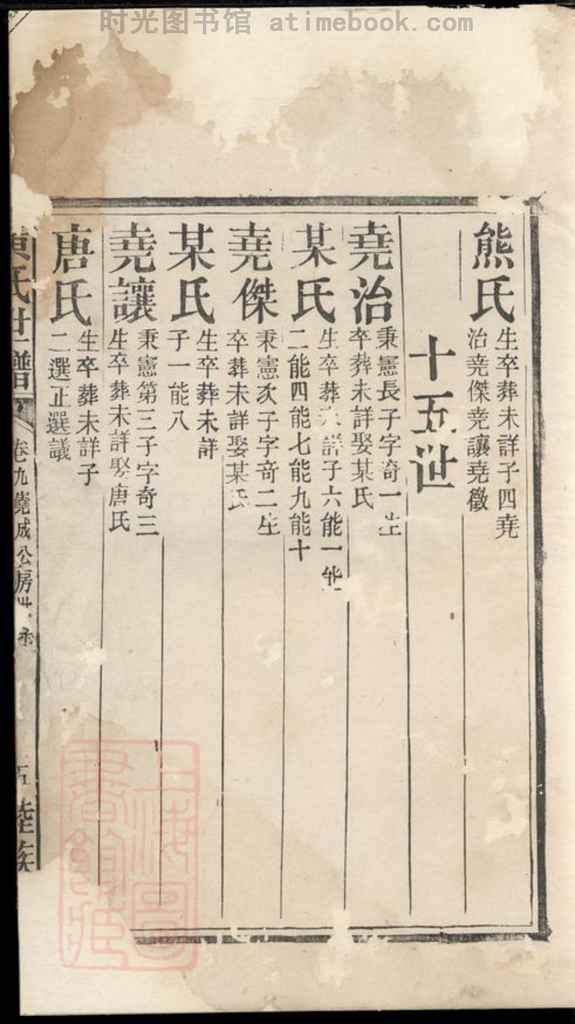 时光图书馆 atimebook.com
熊氏
生卒葬未詳子四堯
治堯傑堯讓堯徵
十五世
堯治
秉憲長子字奇一生
卒葬未詳娶某氏
某氏
生卒葬未詳子六能一能
二能四能七能九能十
堯傑
秉憲次子字奇二生
卒葬未詳娶某氏
某氏
生卒葬未詳
子一能八
堯讓
秉憲第三子字奇三
生卒葬未詳娶唐氏
唐氏
生卒葬未詳子
二選正選議
氏世譜
卷九堯成公房
五 陸族
上海圖
書館藏